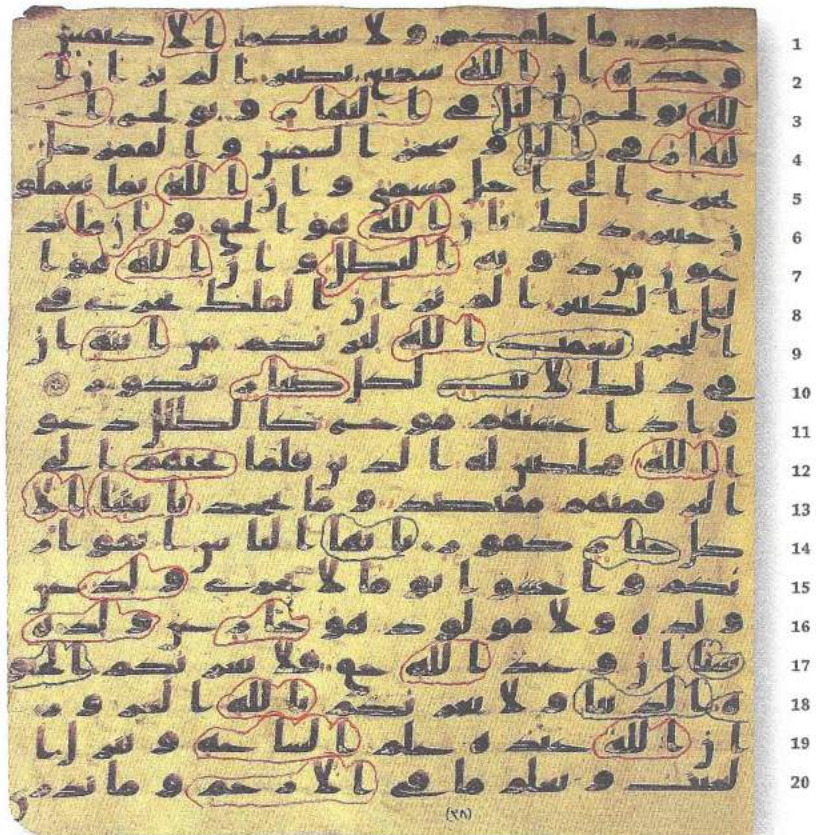 حكيم ما خلقكم ولا بعثكم الا كنفس 1
وحدة ان الله سميع بصير الم تر ان ا 2
لله يولج اليل في النهار ويولج ا 3
لنهار في اليل وسخر الشمس والقمر كل 4
يجري الى اجل مسمى وان الله بما تعملو 5
ن خبير ذلك بان الله هو الحق وان ما يد 6
عون من دونه البطل وان الله هو ا 7
لعلي الكبير الم تر ان الفلك تجري في 8
البحر بنعمت الله ليريكم من ايته ان 9
في ذلك لايت لكل صبار شكور 10
واذا غشيهم موج كالظلل دعو 11
ا الله مخلصين له الدين فلما نجيهم الى 12
البر فمنهم مقتصد وما يجحد بايتنا الا 13
كل ختار كفور يايها الناس اتقوا ر 14
بكم واخشوا يوما لا يجزي ولد عن 15
ولده ولا مولود هو جاز عن ولده 16
شيا ان وعد الله حق فلا تغرنكم الحيو 17
ة الدنيا ولا يغرنكم بالله الغرور 18
ان الله عنده علم الساعة وينزل ا 19
لغيث ويعلم ما في الارحام وما تدري 20
(٢٨)